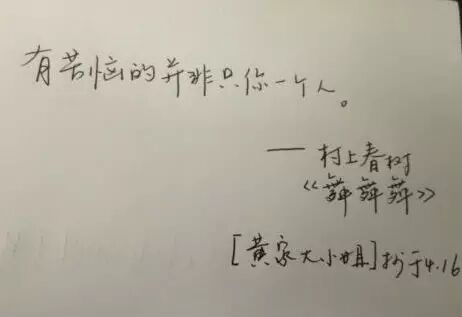 有苦恼的并非只你一个人。
—— 村上春树
《舞舞舞》
[黄家大小姐]抄于4.16